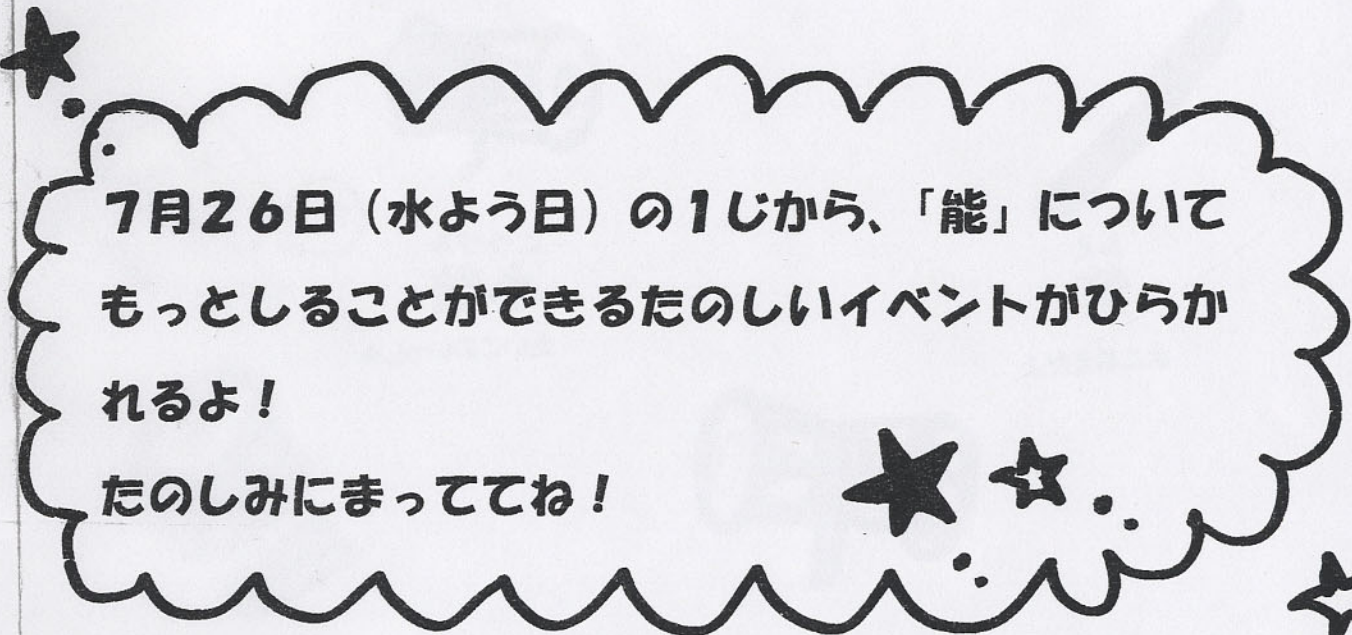 7月26日（水よう日）の1じから、「能」について
もっとしることができるたのしいイベントがひらか
れるよ！
たのしみにまっててね！